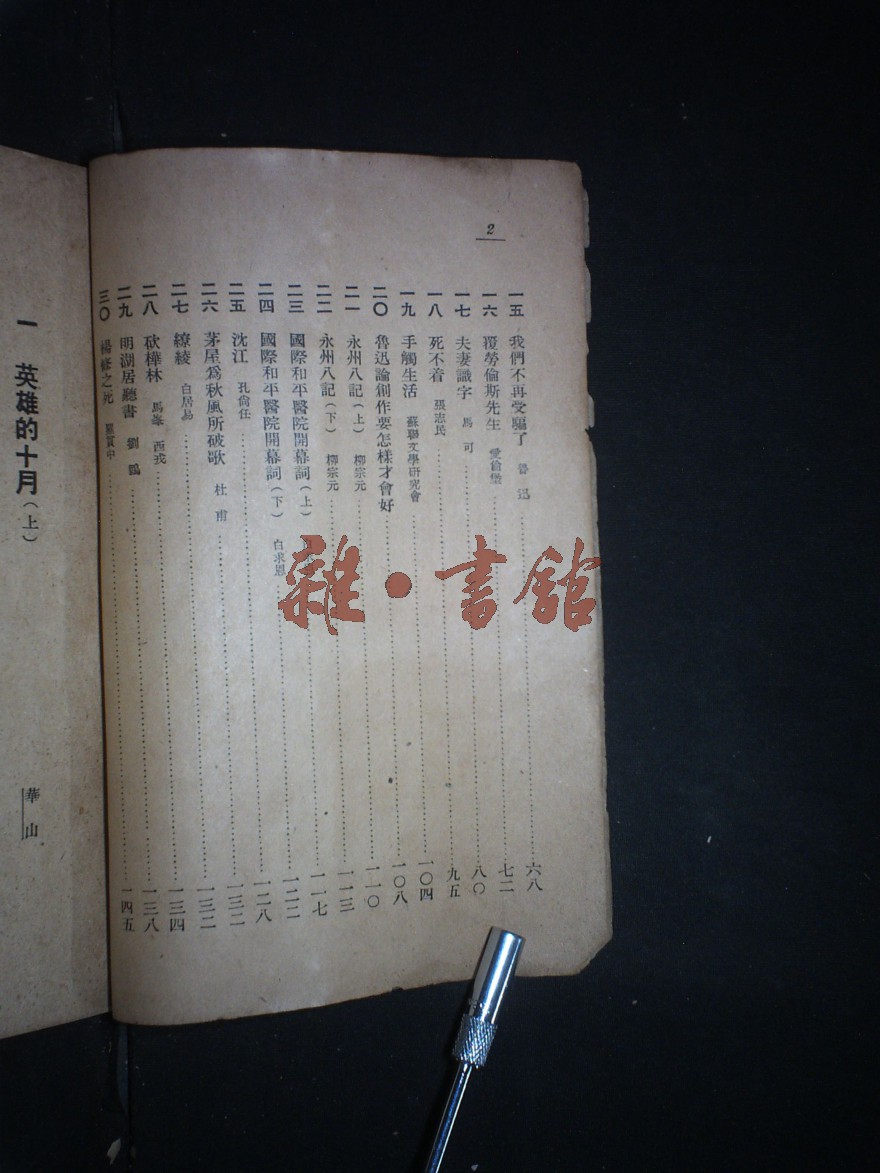 2
一五 我們不再受騙了 魯迅 六八
一六 覆勞倫斯先生 愛倫堡 七二
一七 夫妻識字 馬可 八〇
一八 死不着 張志民 九五
一九 手觸生活 蘇聯文學研究會 一〇四
二〇 魯迅論創作要怎樣才會好 一〇八
二一 永州八記(上) 柳宗元 一一〇
二二 永州八記(下) 柳宗元 一一三
二三 國際和平醫院開幕詞(上) 一一七
二四 國際和平醫院開幕詞(下) 白求恩 一二二
二五 沈江 孔尙任 一二八
二六 茅屋爲秋風所破歌 杜甫 一三二
二七 繚綾 白居易 一三二
二八 砍樺林 馬峯 西戎 一三四
二九 明湖居聽書 劉鶚 一三八
三〇 楊修之死 羅貫中 一四五
一 英雄的十月(上)
華山
雜·書館